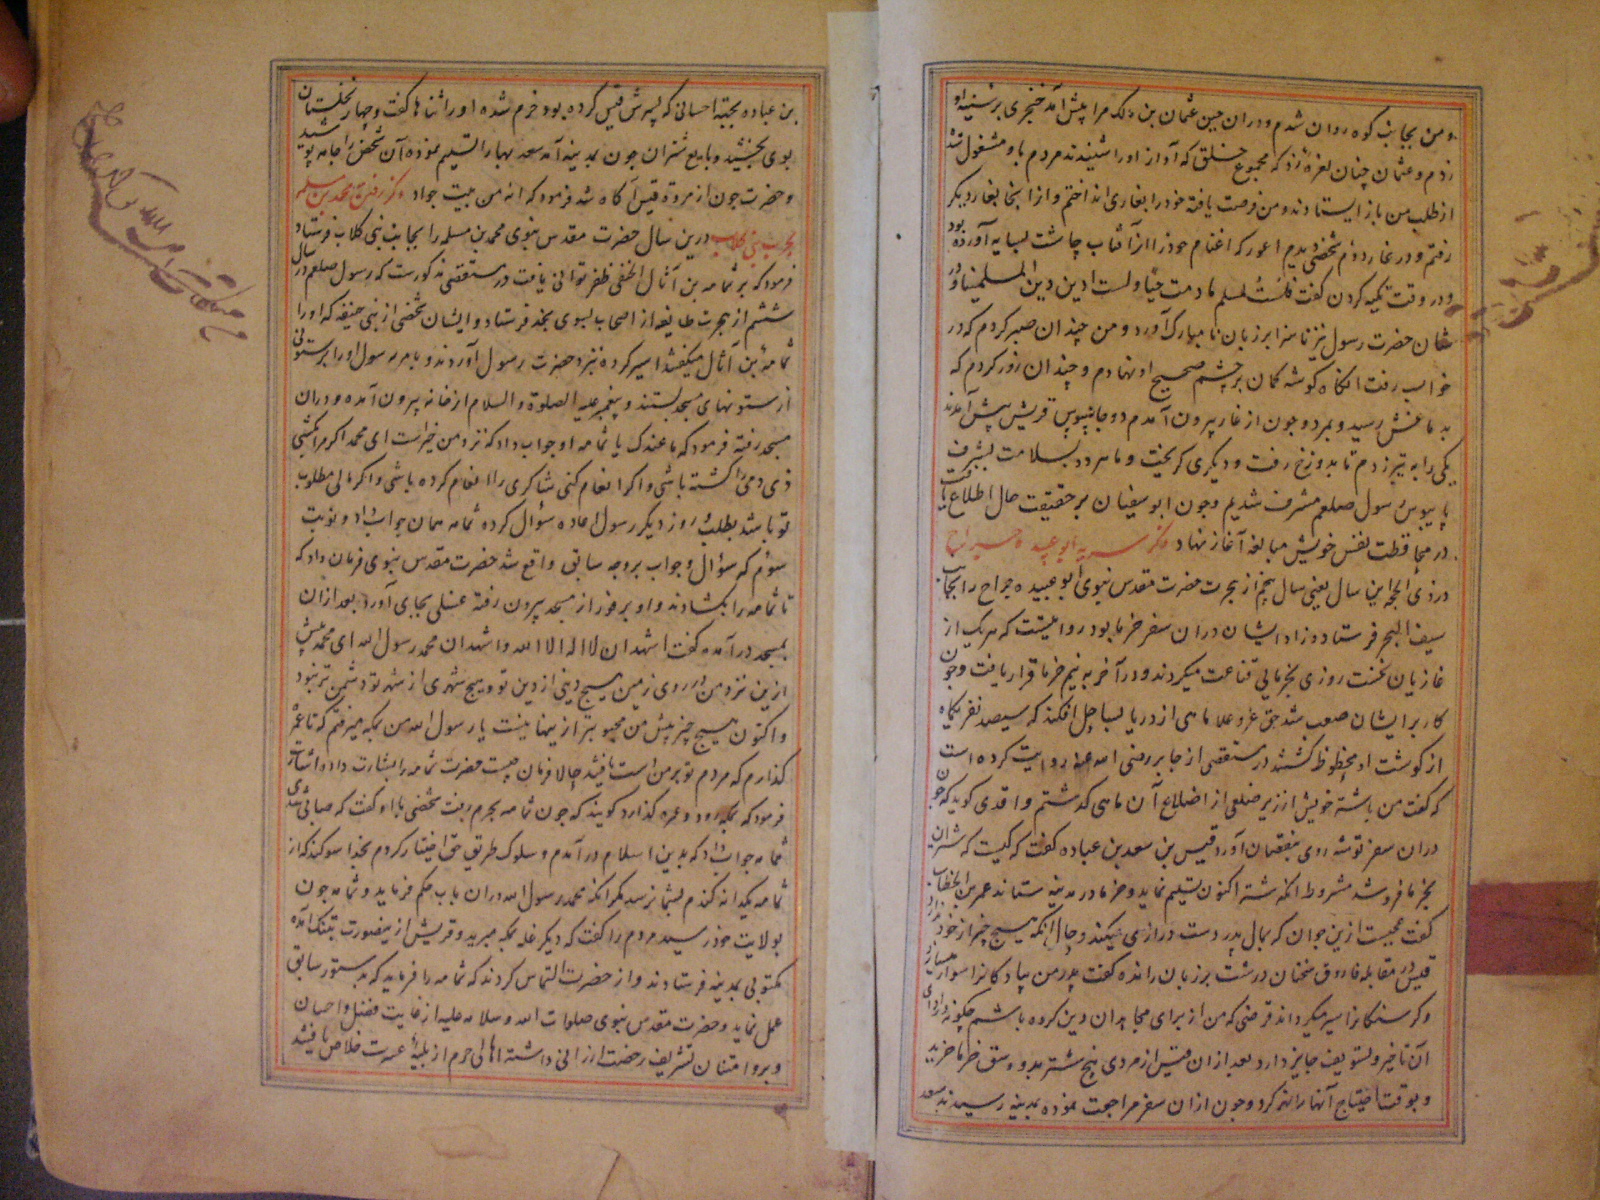 و من بجانب کوه روان شدم و دران حین عثمان بن مالک مرا پیش آمد خنجری بر سینه او
زدم و عثمان چنان نعره زد که مجموع خلق که آواز او را شنیدند مردم باو مشغول شد
از طلب من باز ایستادند و من فرصت یافته خود را بغاری انداختم و از انجا بغار دیکر
رفتم و در غار دوم شخصی دیدم اعور که اغنام خود را از آفتاب چاشت بسایه آورده بود
و در وقت تکیه کردن کفت فلست بمسلم مادمت حیا و لست ادین دین المسلمینا و در
شان حضرت رسول نیز ناسزا بر زبان نامبارک آورد و من چندان صبر کردم که در
خواب رفت انکاه کوشه کمان بر چشم صحیح او نهادم و چندان زور کردم که
بدماغش رسید و بمرد و چون از غار بیرون آمدم دو جاسوس قریش پیش آمدند
یکی را به تیر زدم تا بدوزخ رفت و دیکری کریخت و ما هر دو بسلامت بشرف
پایبوس رسول صلعم مشرف شدیم و چون ابو سفیان بر حقیقت حال اطلاع یافت
در محافظت نفس خویش مبالغه آغاز نهاد ذکر سریه ابو عبیده جراح
در ذی الحجه این سال یعنی سال پنجم از هجرت حضرت مقدس نبوی ابو عبیده جراح را بجانب
سیف البحر فرستاد و زاد ایشان دران سفر خرما بود روایتست که هر یک از
غازیان نخست روزی بخرمایی قناعت میکردند و در آخر به نیم خرما قرار یافت و چون
کار بر ایشان صعب شد حق عز و علا ماهی از دریا بساحل افکند که سیصد نفر یکماه
از کوشت او محظوظ کشتند در مستقصی از جابر رضی الله عنه روایت کرده است
که کفت من با شتر خویش از زیر ضلعی از اضلاع آن ماهی کذشتم واقدی کوید که چون
دران سفر توشه روی بنقصان آورد قیس بن سعد بن عباده کفت که کیست که شتران
بخرما فروشد مشروط انکه شتر اکنون تسلیم نماید و خرما در مدینه ستاند عمر بن الخطاب
کفت عجبست ازین جوان که بمال پدر دست درازی میکند و حال انکه هیچ چیز از خود ندارد
قیس در مقابله فاروق سخنان درشت بر زبان رانده کفت پدر من پیادکانرا سوار میسازد
و کرسنکانرا سیر میکرداند قرضی که من از برای مجاهدان دین کرده باشم چکونه در ادای
آن تاخیر و تسویف جایز دارد بعد ازان قیس از مردی پنج شتر بدو وسق خرما خرید
و بوقت احتیاج آنها را نحر کرد و چون ازان سفر مراجعت نموده بمدینه رسیدند سعد
بن عباده بجهة احسانی که پسرش قیس کرده بود خرم شده او را ثناها کفت و چهار نخلستان
بوی بخشید و بایع شتران چون بمدینه آمد سعد بها را تسلیم نموده آن شخص را جامه پوشید
و حضرت چون از مروة قیس آکاه شد فرمود که انه من بیت جواد ذکر رفتن محمد بن مسلمه
بحرب بنی کلاب درین سال حضرت مقدس نبوی محمد بن مسلمه را بجانب بنی کلاب فرستاد
فرمود که بر ثمامه بن آثال الحنفی ظفر توانی یافت در مستقصی مذکورست که رسول صلعم در سال
ششم از هجرت طایفه از اصحاب بسوی نجد فرستاد و ایشان شخصی از بنی حنیفه که او را
ثمامه بن آثال میکفتند اسیر کرده نزد حضرت رسول آوردند و بامر رسول او را بر ستونی
از ستونهای مسجد بستند و پیغمبر علیه الصلوة و السلام از خانه بیرون آمده و دران
مسجد رفته فرمود که ما عندک یا ثمامه او جواب داد که نزد من خیراست ای محمد اکر مرا بکشی
ذی دمی را کشته باشی و اکر انعام کنی شاکری را انعام کرده باشی و اکر مالی مطلوب
تو باشد بطلب روز دیکر رسول اعاده سؤال کرده ثمامه همان جواب داد و نوبت
سوم که سؤال و جواب بروجه سابق واقع شد حضرت مقدس نبوی فرمان داد که
تا ثمامه را بکشادند و او بر فور از مسجد بیرون رفته غسلی بجای آورد بعد ازان
بمسجد درآمده کفت اشهد ان لا اله الا الله و اشهد ان محمد رسول الله ای محمد پیش
ازین نزد من از روی زمین هیچ دینی از دین تو و هیچ شهری از شهر تو دشمن تر نبود
و اکنون هیچ چیز پیش من محبوبتر ازینها نیست یا رسول الله من بمکه میرفتم که تا عمره
کذارم که مردم تو بر من دست یافتند حالا فرمان چیست حضرت ثمامه را بشارت داده
فرمود که بمکه رود و عمره کذارد کویند که چون ثمامه بحرم رفت شخصی با او کفت که صبائی شدی
ثمامه جواب داد که بدین اسلام درآمدم و سلوک طریق حق اختیار کردم بخدا سوکند که از
ثمامه یکدانه کندم بشما نرسد مکر انکه محمد رسول الله دران باب حکم فرماید و ثمامه چون
بولایت خود رسید مردم را کفت که دیکر غله بمکه مبرید و قریش ازینصورت بتنک آمده
مکتوبی بمدینه فرستادند و از حضرت التماس کردند که ثمامه را فرماید که بدستور سابق
عمل نماید و حضرت مقدس نبوی صلوات الله و سلامه علیه از غایت فضل و احسان
و بر و امتنان تشریف رخصت ارزانی داشته اهالی حرم از بلیه عسرت خلاص یافتند